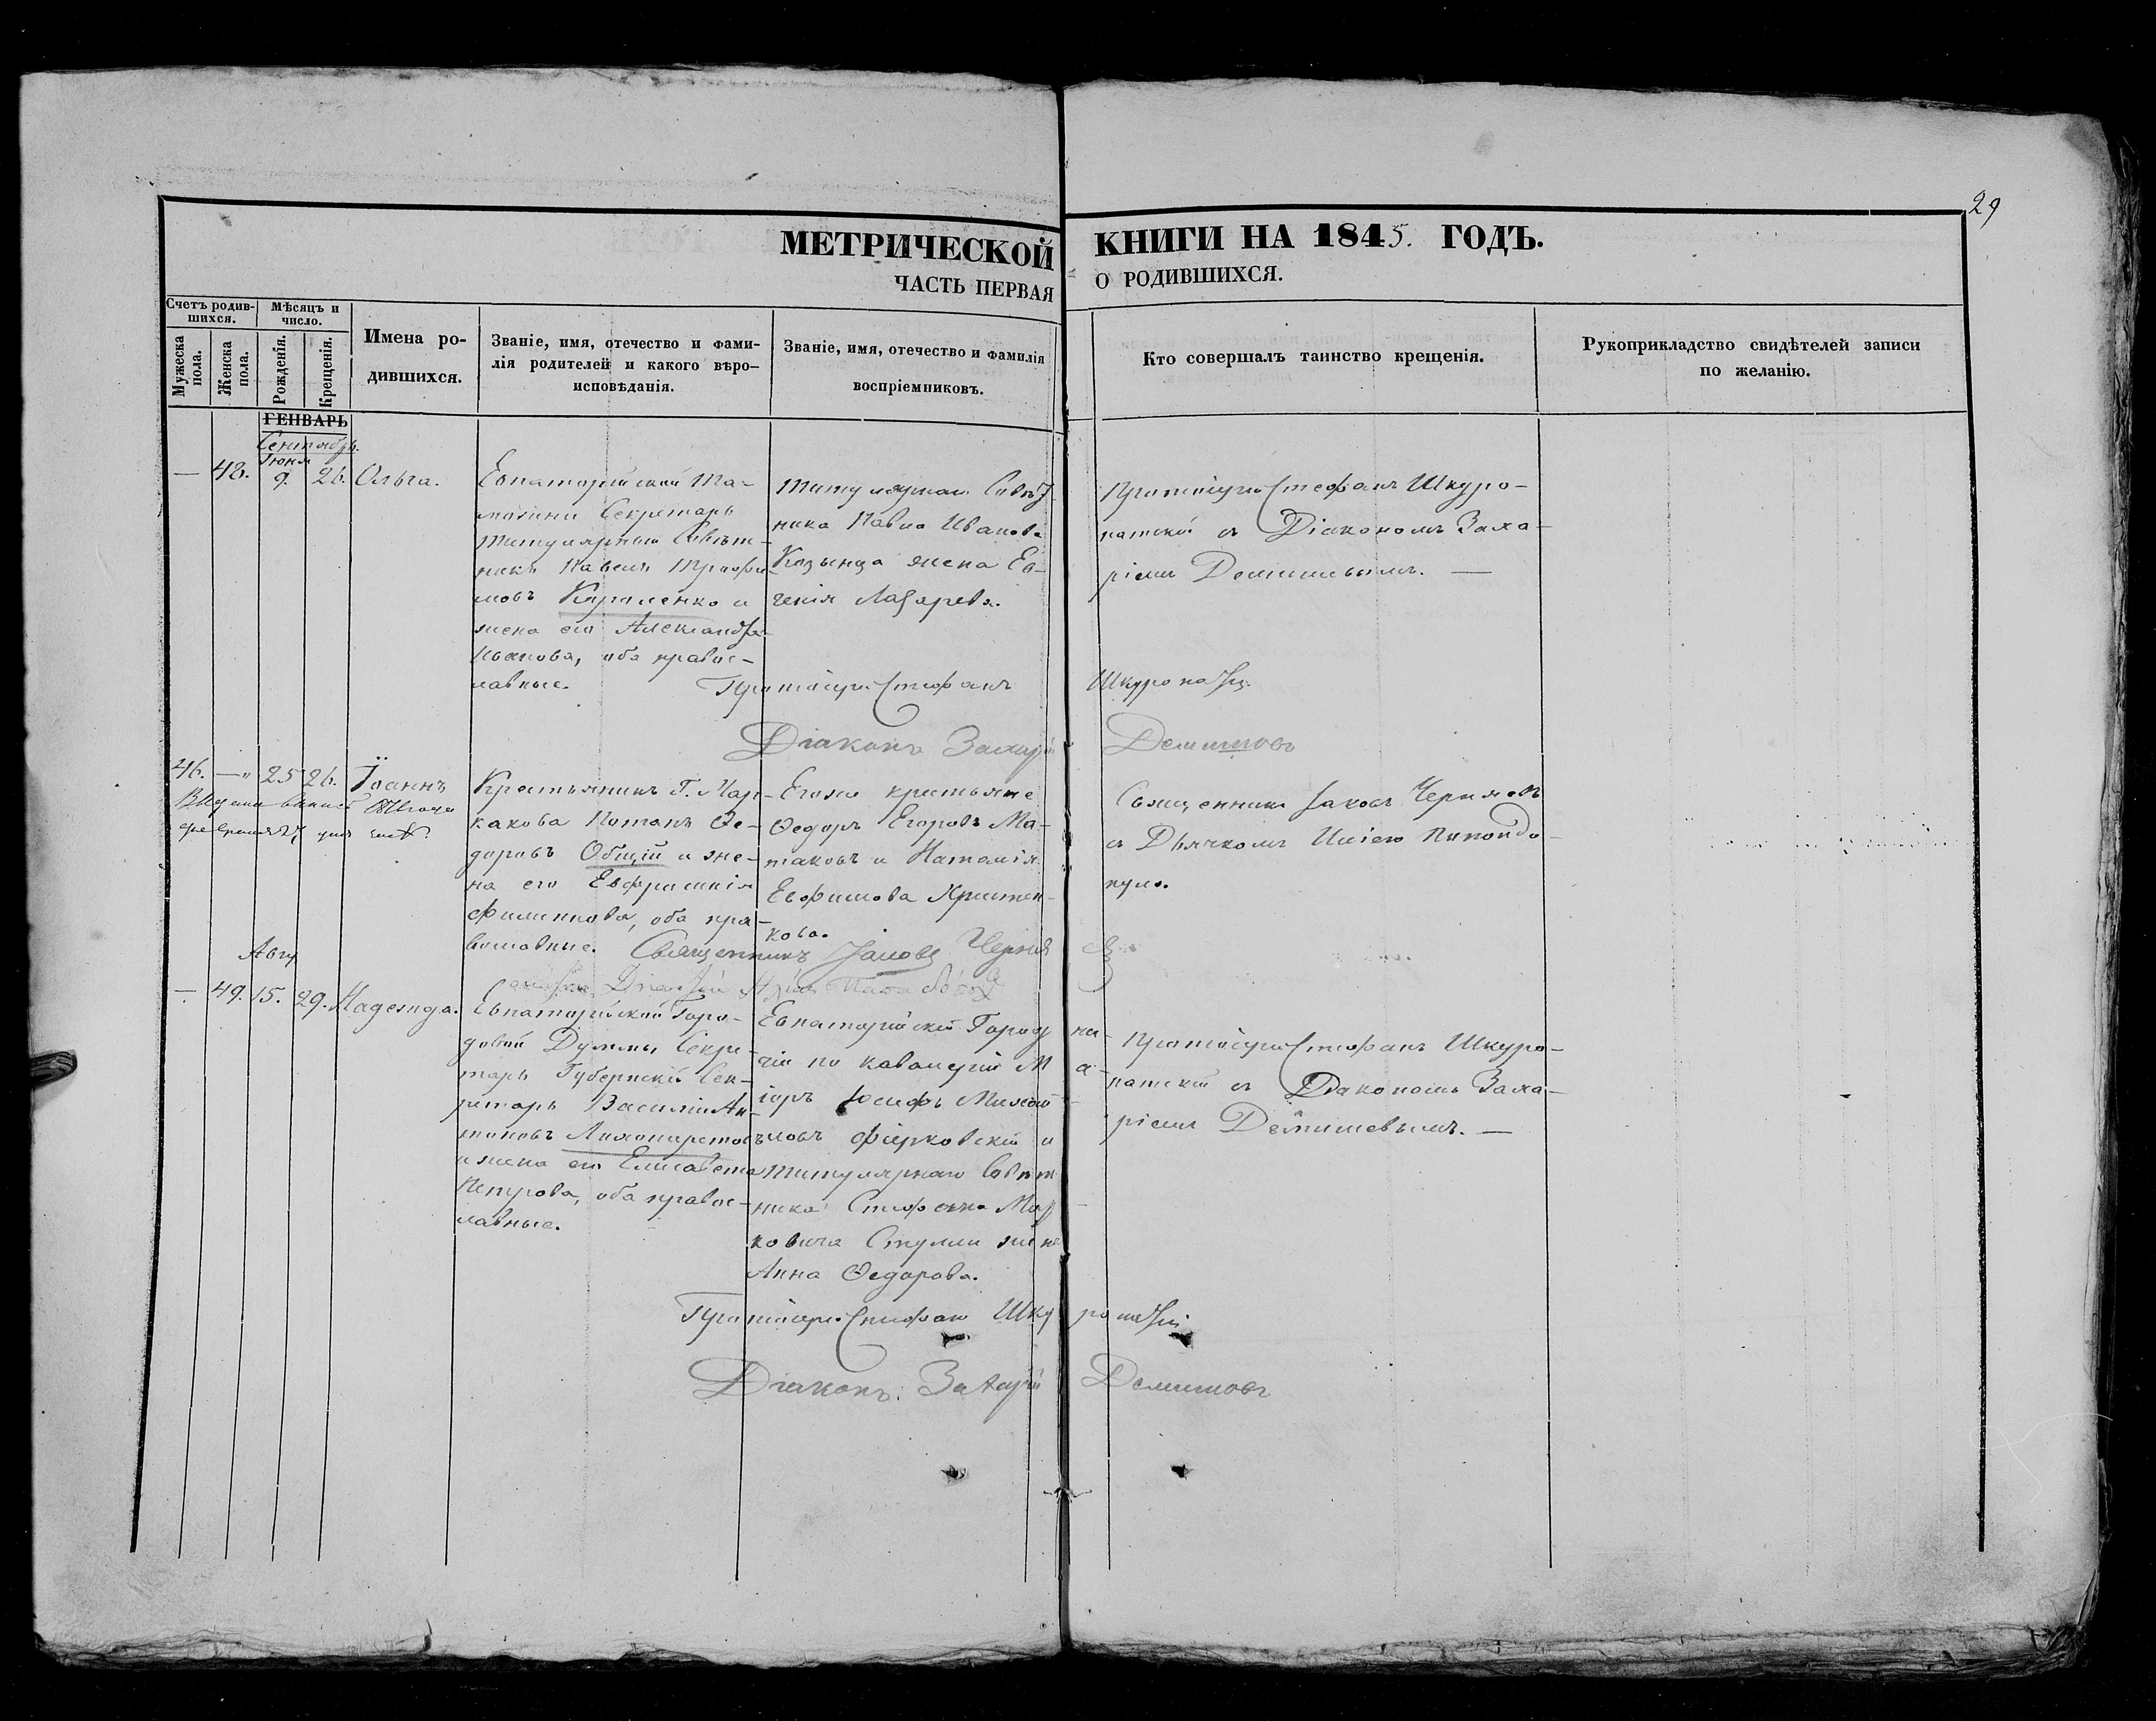 29
МЕТРИЧЕСКОЙ КНИГИ НА 1845. ГОДЪ.
ЧАСТЬ ПЕРВАЯ О РОДИВШИХСЯ.
Счетъ родив-
шихся.
Мѣсяцъ и
число.
Мужеска
пола.
Женска
пола.
Рожденія.
Крещенія.
Имена ро-
дившихся.
Званіе, имя, отечество и фами-
лія родителей и какого вѣро-
исповѣданія.
Званіе, имя, отечество и фамилія
воспріемниковъ.
Кто совершалъ таинство крещенія.
Рукоприкладство свидѣтелей записи
по желанію.
ГЕНВАРЬ
Сентябрь.
Іюня
— 48. 9. 26. Ольга.
Евпаторійской Та-
можни Секретарь
Титулярный Совѣт-
никъ Павелъ Трофи
мовъ Кираленко и
жена его Александра
Иванова, оба правос-
лавные.
Титулярнаго Совѣт
ника Павла Иванова
Казынца жена Ев-
генія Лазарева.
Протоіерей Стефанъ Шкуро-
патскій съ Діакономъ Заха-
ріемъ Демишевымъ. —
Протоіерей Стефанъ Шкуропатскі
Діаконъ Захарій Демишовъ
46. — 25 26. Іоаннъ
Крестьянинъ Г. Мар-
какова Потапъ Ѳе-
доровъ Общій и же-
на его Евфросинія
Филиппова, оба пра-
вославные.
Егожъ крестьяне
Ѳедоръ Егоровъ Ма-
таковъ и Наталія
Евфимова Христен-
кова.
Священникъ Іаковъ Чернявъ
съ Дьячкомъ Иліею Пипондо-
пуло.
Священникъ Іаковъ Черняв
Авгу
— 49. 15. 29. Надежда.
Евпаторійской Горо-
довой Думмы Секре-
тарь Губернскій Сек-
ретарь Василій Ан-
тоновъ Лихопаретовъ
и жена его Елисавета
Петрова, оба правос-
лавные.
Евпаторійскій Городни-
чій по кавалеріи Ма-
іоръ Іосифъ Михай-
ловъ Фирковскій и
Титулярнаго Совѣт
ника Стефана Мар-
ковича Стулли жена
Анна Ѳедорова.
Протоіерей Стефанъ Шкуро-
патскій съ Діакономъ Заха-
ріемъ Демишевымъ. —
Протоіерей Стефанъ Шкуропатскій
Діаконъ Захарій Демишовъ